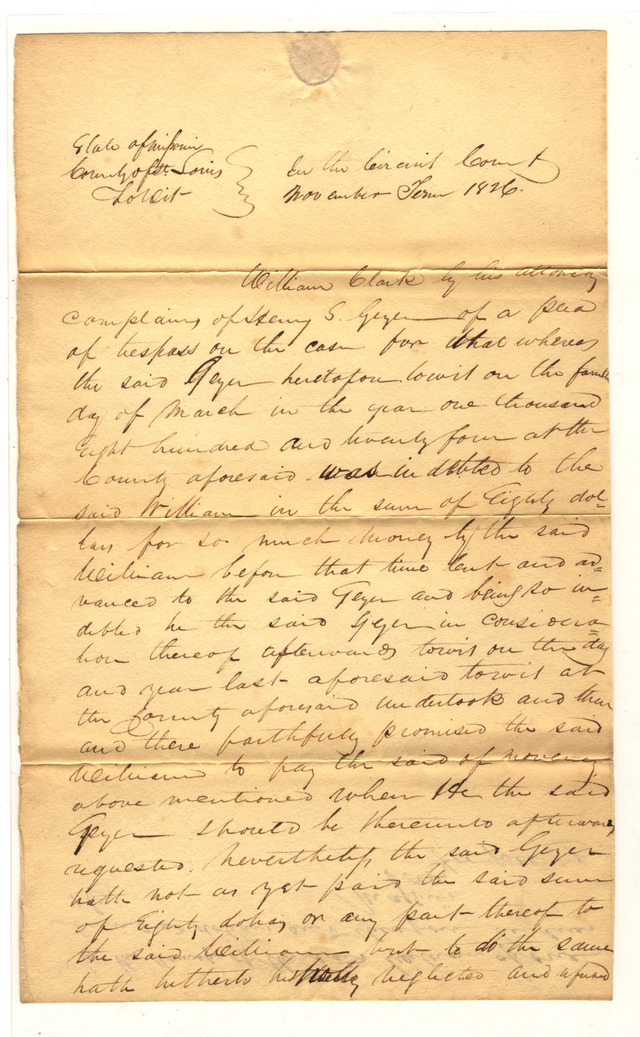 State of Missouri
County of St. Louis
Towit
In the Circuit Court
November Term 1826.
William Clark by his attorney
complains of Henry S. Geyer of a plea
of trespass on the case for that whereas
the said Geyer heretofore towit on the
day of March in the year one thousand
Eight hundred and twenty four at the
County aforesaid was indebted to the
said William in the sum of Eighty dol=
lars for so much money by the said
William before that time lent and ad=
vanced to the said Geyer and being so in=
debted he the said Geyer in considera=
tion thereof afterwards towit on the day
and year last aforesaid towit at
the County aforesaid undertook and then
and there faithfully promised the said
William to pay the said of money
above mentioned when he the said
Geyer should be thereunto afterwards
requested. Nevertheless the said Geyer
hath not as yet paid the said sum
of Eighty dollars or any part thereof to
the said William but to do the same
hath hitherto wholly neglected and refused